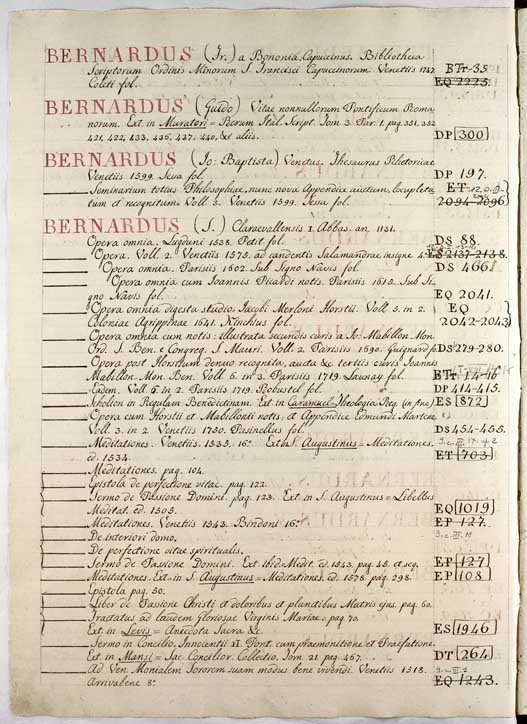 BERNARDUS (Fr.) a Bononia, Capucinus. Bibliotheca
Scriptorum Ordinis Minorum S. Francisci Capucinorum. Venetiis 1747 BTr-35.
Coleti fol. EQ 2225.
BERNARDUS (Guido) Vitae nonnullorum Pontificum Roma-
norum. Ext. in Muratori = Rerum Ital. Script. Tom. 3. Par. 1. pag. 351. 352
421, 422, 433, 436, 437, 440, & aliis. DP 300
BERNARDUS (Jo: Baptista) Venetus. Thesaurus Rhetoricae
Venetiis 1599. Sessa fol. DP 197.
Seminarium totius Philosophiae, nunc nova Appendice auctum, locupleta ET
tum et recognitum. Voll. 3. Venetiis 1599. Sessa fol. 2094-2096
BERNARDUS (S.) Claraevallensis 1. Abbas. an. 1131.
Opera omnia. Lugduni 1538. Petit fol. DS 88.
Opera. Voll. 2. Venetiis 1575. ad candentis Salamandrae, insigne 4. ES 2137-2138.
Opera omnia. Parisiis 1602. Sub Signo Navis fol. DS 466
Opera omnia cum Joannis Picardi notis. Parisiis 1613. Sub Si-
gno Navis fol. EQ 2041.
Opera omnia digesta studio Jacobi Merloni Horstii Voll. 5. in 2. EQ
Coloniae Agrippinae 1641. Kinchius fol. 2042-2043
Opera omnia cum notis: illustrata secundis curis a Jo: Mabillon Mon.
Ord. S. Ben. e Congreg. S. Mauri. Voll. 2. Parisiis 1690. Guignard fo. DS 279-280.
Opera post Horstium denuo recognita, aucta & tertiis curis Joannis
Mabillon Mon. Ben. Voll. 6. in 3. Parisiis 1719. Launay fol. BTr 14-16
Eadem. Voll. 6. in 2. Parisiis 1719. Robustel fol. DP 414-415.
Scholion in Regulam Benedictinam. Ext. in Caramuel = Theologia Reg. (in fine) ES 872
Opera cum Horstii et Mabillonii notis, et Appendice Edmundi Martene
Voll. 3. in 2. Venetiis 1750. Pasinellus fol. DS 454-455.
Meditationes. Venetiis 1535. 16° Ext. in S. Augustinus = Meditationes.
ed. 1534. ET 703
Meditationes. pag. 104.
Epistola de perfectione vitae. pag. 122.
Sermo de Passione Domini. pag. 123. Ext. in S. Augustinus = Libellus
Meditat. ed. 1505. EQ 1019
Meditationes. Venetiis 1543. Bindoni 16° EP 127.
De interiori domo.
De perfectione vitae spiritualis.
Sermo de Passione Domini. Ext. ibid = Medit. ed. 1543. pag. 45. et seq. EP 127
Meditationes. Ext. in S. Augustinus = Meditationes. ed. 1578. pag. 298. EP 108
Epistola pag. 50.
Liber de Passione Christi et doloribus et planctibus Matris ejus. pag. 60.
Tractatus ad laudem gloriosae Virginis Mariae. pag. 70.
Ext. in Levis = Anecdota Sacra &c. ES 1946
Sermo in Concilio. Innocentii II. Pont. cum praemonitione et Praefatione.
Ext. in Mansi = Sac. Concilior. Collectio. Tom. 21. pag. 467. DT 264
Ad Ven. Monialem Sororem suam modus bene vivendi. Venetiis 1518.
Arrivabene 8° EQ 1243.